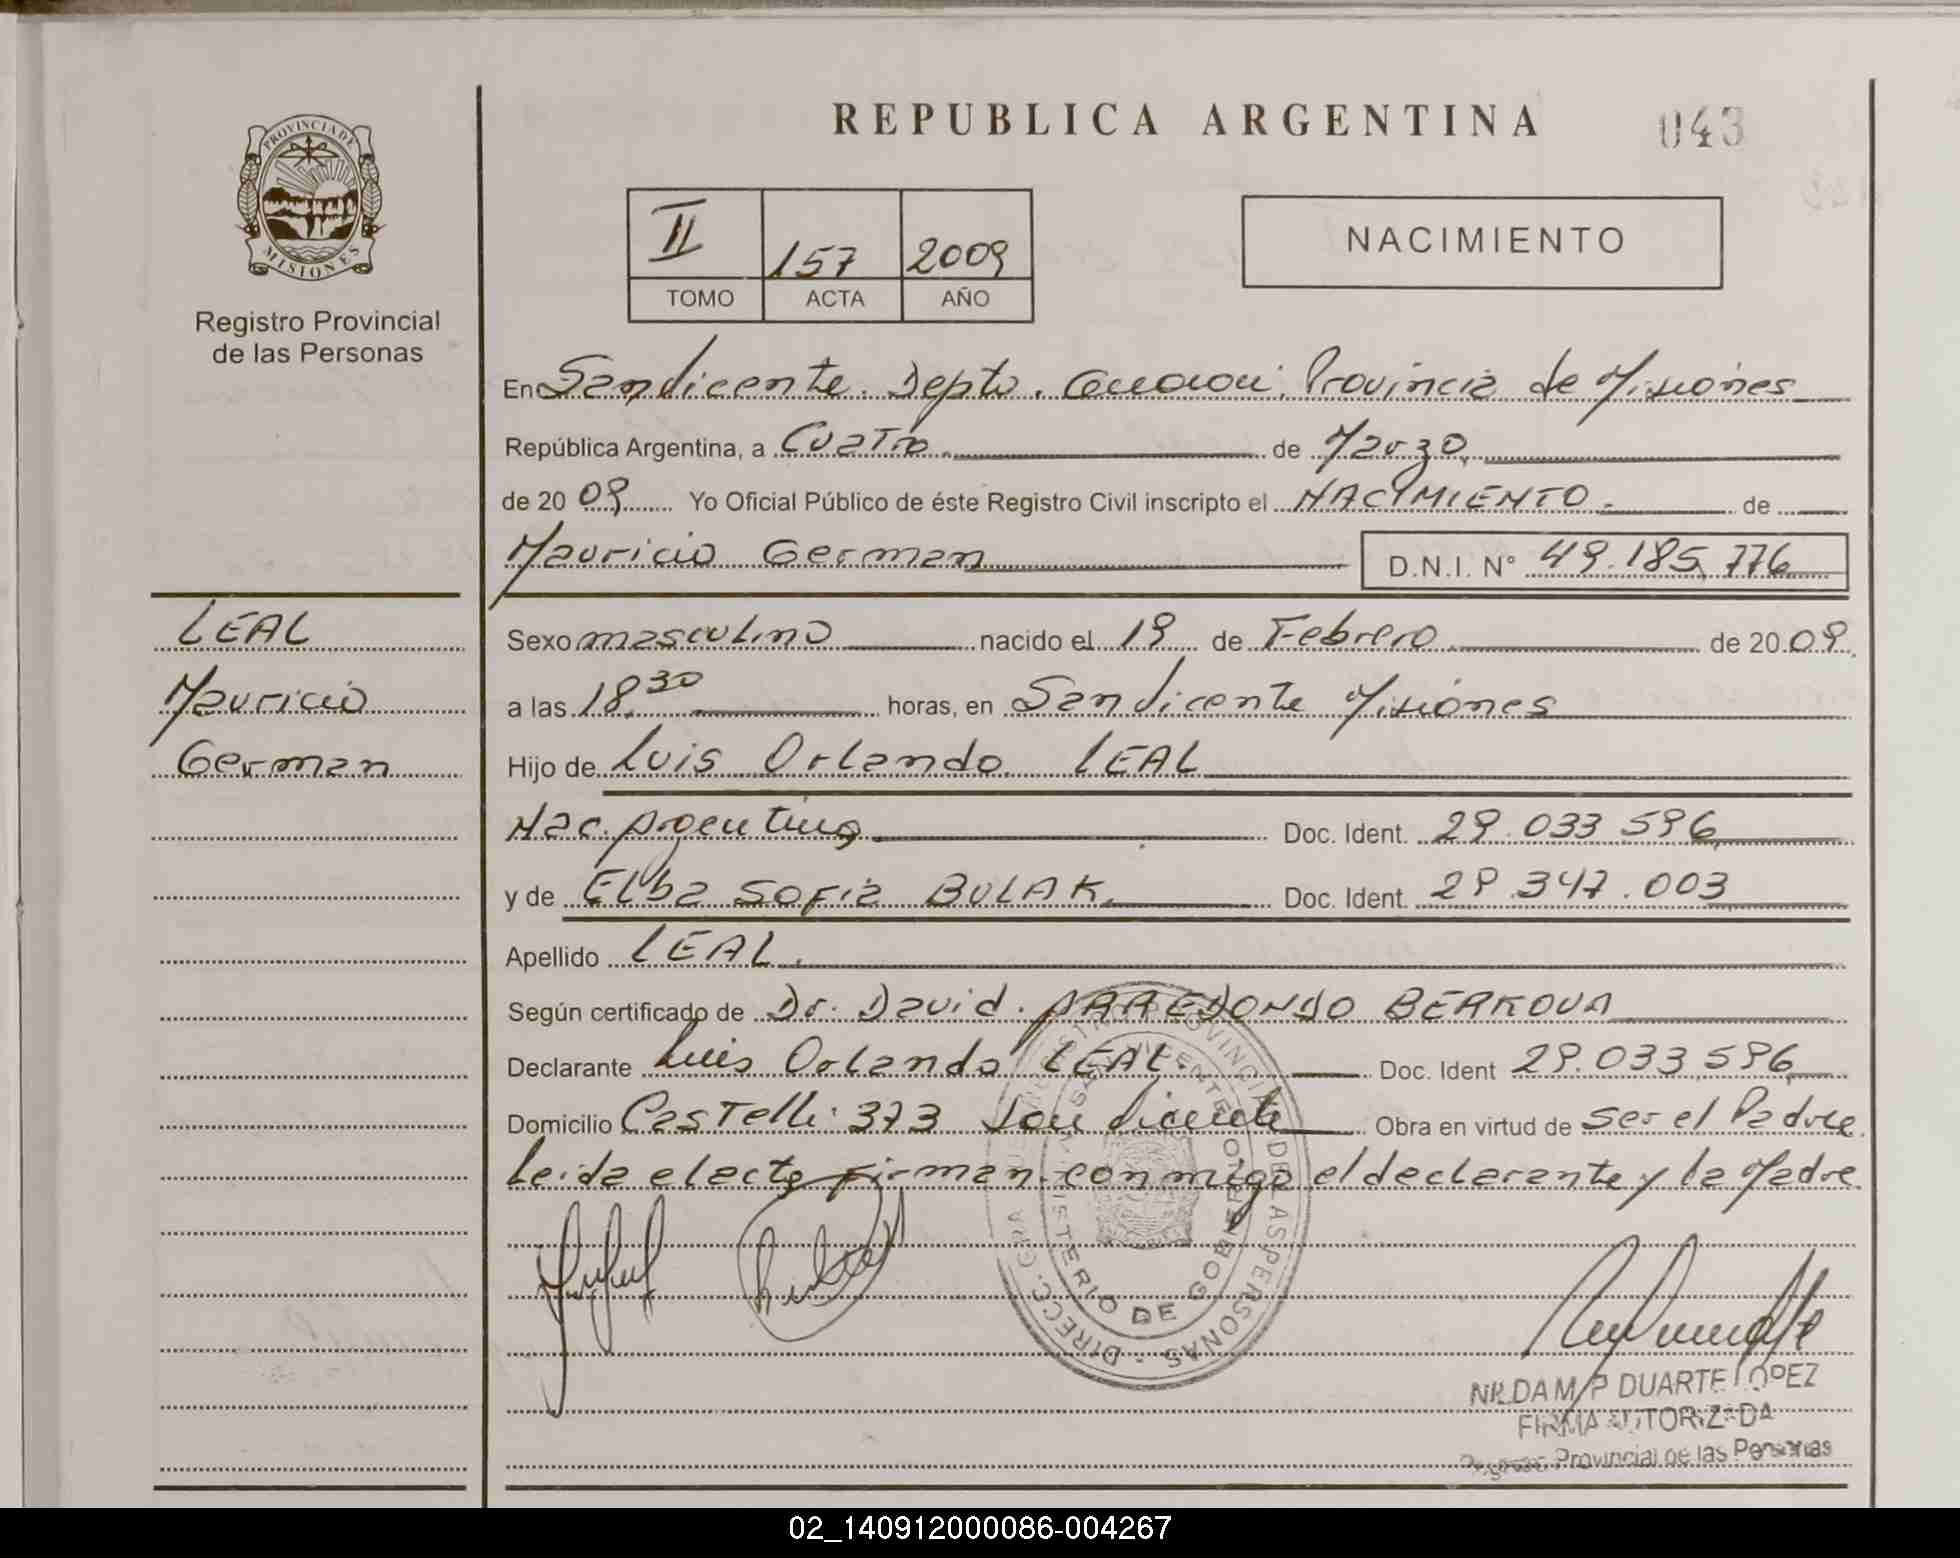 REPUBLICA ARGENTINA
043
PROVINCIA DE
MISIONES
Registro Provincial
de las Personas
II 157 2009
TOMO ACTA AÑO
NACIMIENTO
En San Vicente. Depto. Guarani. Provincia de Misiones
República Argentina, a Cuatro. de Marzo
de 20 09 Yo Oficial Público de éste Registro Civil inscripto el NACIMIENTO. de
Mauricio German D.N.I. N° 49.185.776
LEAL
Mauricio
German
Sexo masculino nacido el 19 de Febrero de 20 09
a las 18,30 horas, en San Vicente Misiones
Hijo de Luis Orlando LEAL
Nac. Argentino Doc. Ident. 29.033.596
y de Elba SOFia BULAK. Doc. Ident. 29.347.003
Apellido LEAL.
Según certificado de Dr. David. ARREDONDO BERKOVA
Declarante Luis Orlando LEAL. Doc. Ident 29.033.596
Domicilio Castelli 373 San Vicente Obra en virtud de ser el Padre.
Leida el acta firman conmigo el declarante y la Madre.
MINISTERIO DE GOBIERNO
NILDA M. P DUARTE LOPEZ
FIRMA AUTORIZADA
Provincial de las Personas
02_140912000086-004267